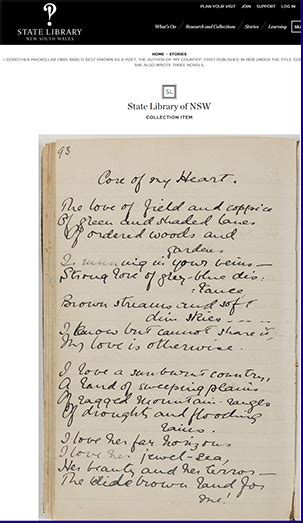 PLAN YOUR VISIT JOIN SUPPORT LOG IN
STATE LIBRARY
NEW SOUTH WALES
What's On Research and Collections Stories Learning
HOME STORIES
DOROTHEA MACKELLAR (1885-1968) IS BEST KNOWN AS A POET. THE AUTHOR OF 'MY COUNTRY', FIRST PUBLISHED IN 1908 UNDER THE TITLE
SHE ALSO WROTE THREE NOVELS.
SL
State Library of NSW
COLLECTION ITEM
93
Core of my Heart.
The love of field and coppice
Of green and shaded lanes
Of ordered woods and
gardens
Is running in your veins —
Strong love of grey-blue dis:
tance
Brown streams and soft
dim skies
I know but cannot share it,
My love is otherwise.
I love a sunburnt country,
A land of sweeping plains
Of ragged mountain-ranges
Of droughts and flooding
rains.
I love her far horizons
I love her jewel-sea
Her beauty and her terror —
The wide brown land for
me!